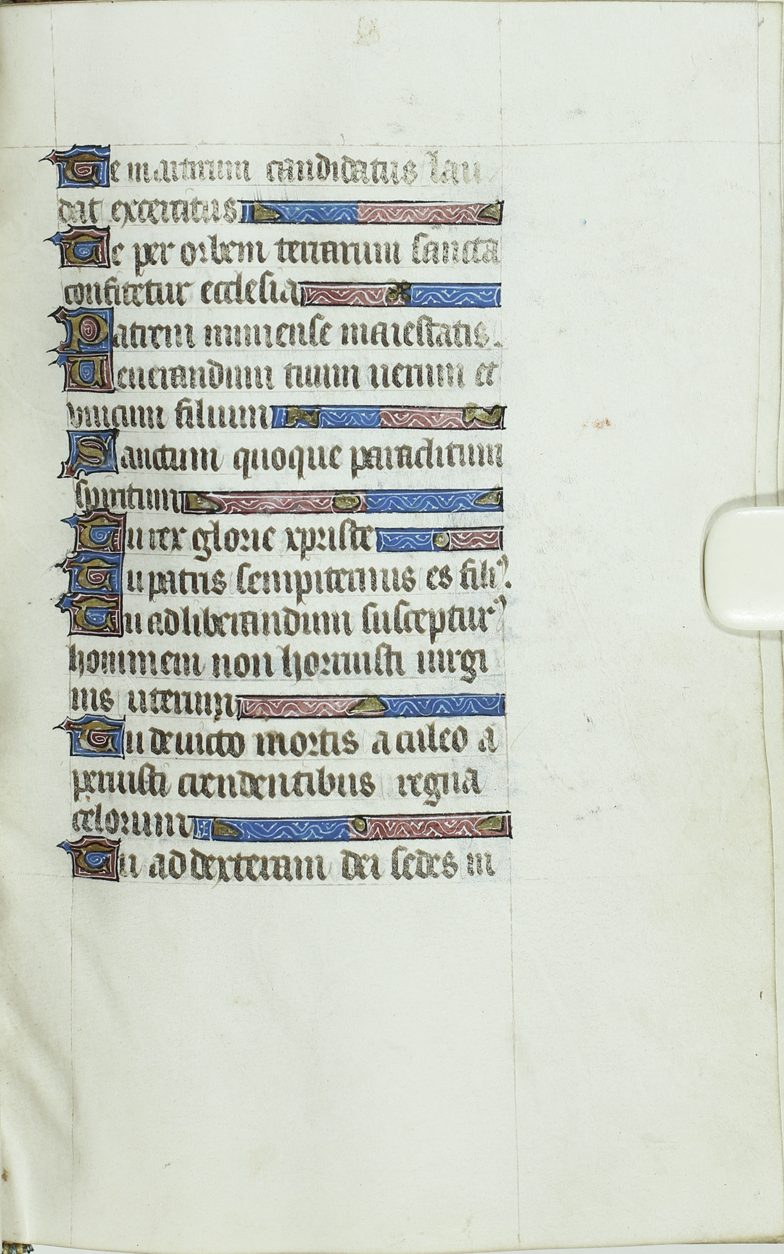 Te martirum candidatus lau
dat excercitus
Te per orbem terrarum sancta
confitetur ecclesia
Patrem immense maiestatis.
Uenerandum tuum uerum et
vnicum filium
Sanctum quoque paraclitum
spiritum
Tu rex glorie xpriste
Tu patris sempiternus es fili⁹.
Tu ad liberandum susceptur⁹
hominem non horruisti uirgi
nis uterum
Tu deuicto mortis aculeo a
peruisti crendentibus regna
celorum
Tu ad dexteram dei sedes in